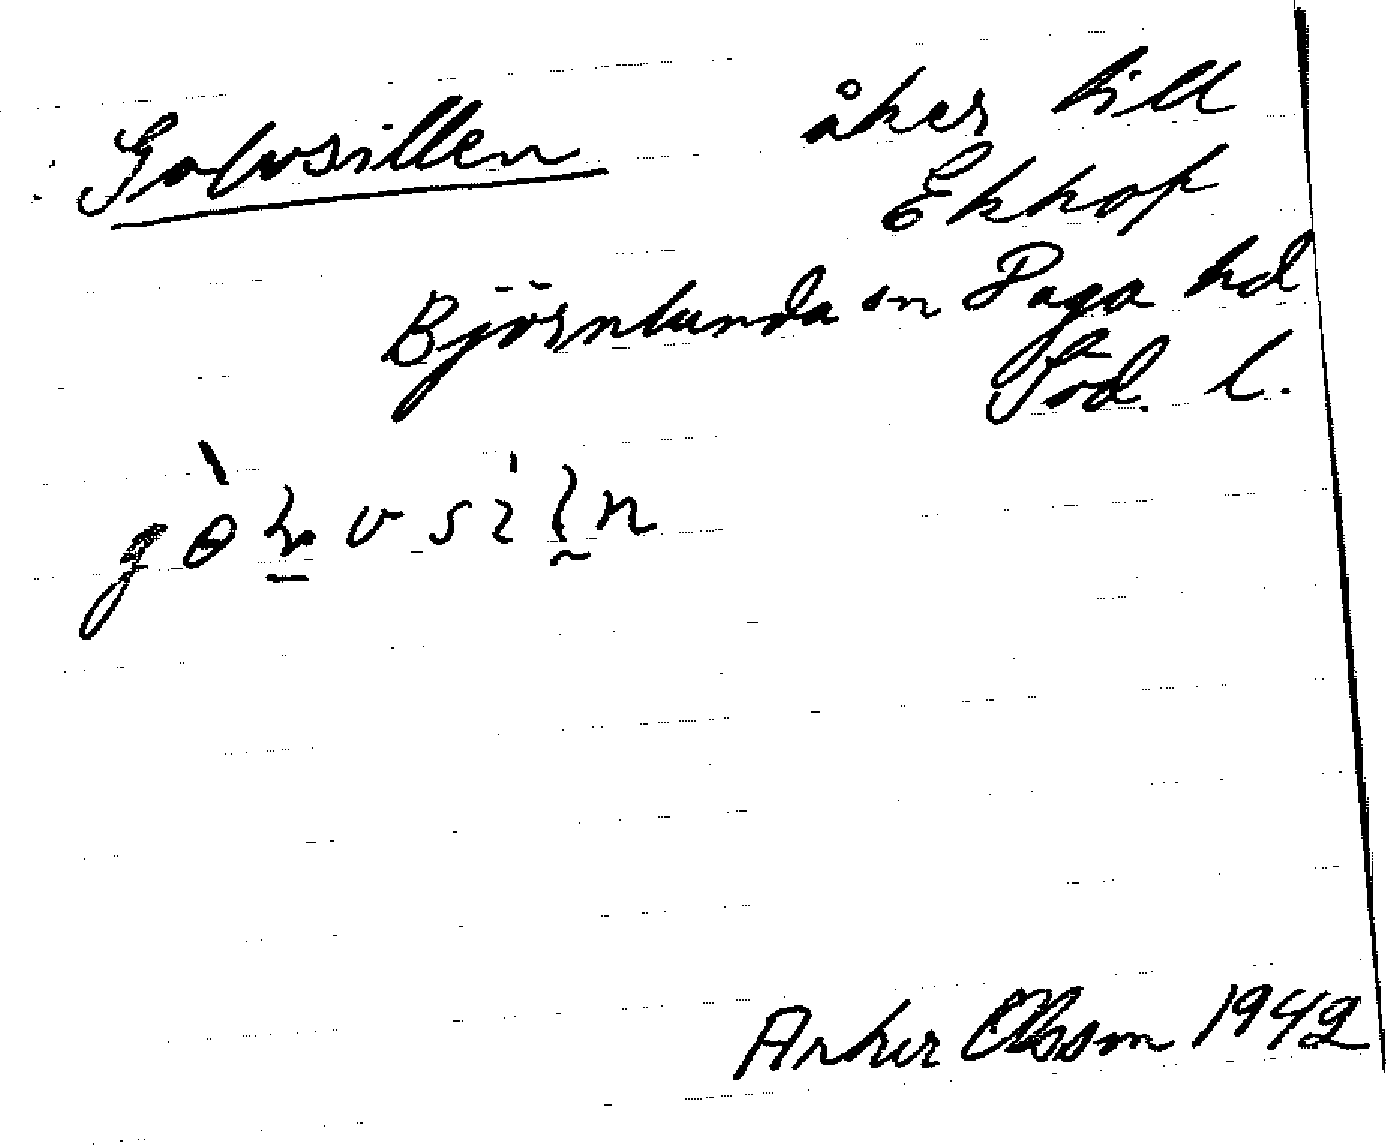 Golvsillen
åker till
Ekhof
Björnlunda sn Daga hd
Söd. l.
Anker Olsson 1942